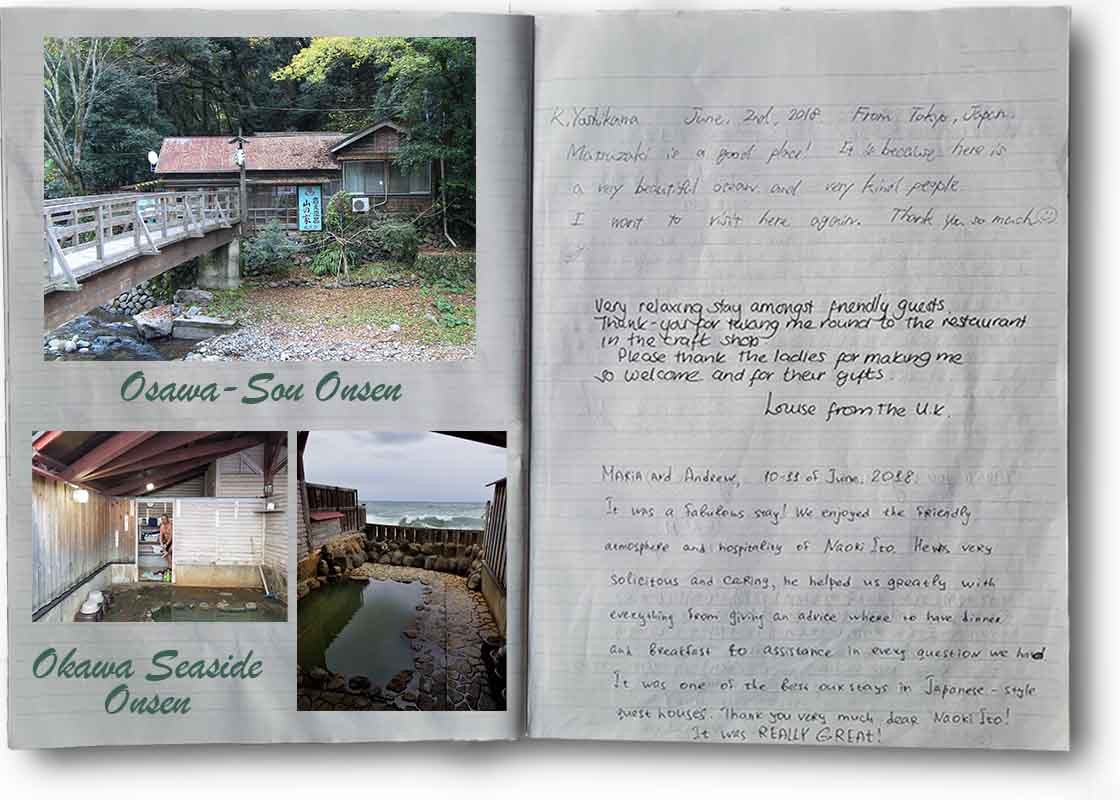 Osawa-Sou Onsen
山の家
Okawa Seaside
Onsen
K. Yoshikawa June. 2nd, 2018 From Tokyo, Japan.
Matsuzaki is a good place! It is because here is
a very beautiful ocean and very kind people
I want to visit here again. Thank you so much☺
Very relaxing stay amongst friendly guests.
Thank-you for taking me round to the restaurant
in the craft shop
Please thank the ladies for making me
so welcome and for their gifts.
Louise from the U.K.
Maria and Andrew, 10-11 of June, 2018.
It was a fabulous stay! We enjoyed the friendly
atmosphere and hospitality of Naoki Ito. He was very
solicitous and caring, he helped us greatly with
everything from giving an advice where to have dinner
and breakfast to assistance in every question we had
It was one of the best our stays in Japanese-style
guest houses. Thank you very much, dear Naoki Ito!
It was REALLY GREAT!